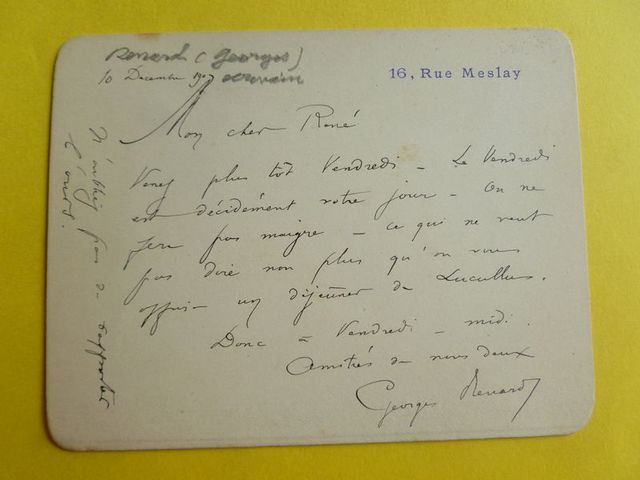 Renard (Georges)
10 Decembre 1907 écrivain
16, Rue Meslay
Mon cher René
Venez plus tôt Vendredi – Le Vendredi
est décidément votre jour – On ne
fera pas maigre – ce qui ne veut
pas dire non plus qu'on vous
offrira un déjeuner de Lucullus.
Donc à Vendredi – midi.
Amitiés de nous deux
Georges Renard
N'oubliez pas d'apporter
l'ours.